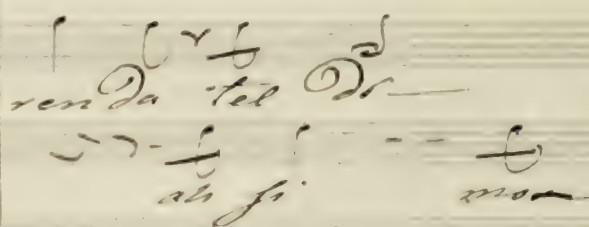 renda tel Di
ah si mo